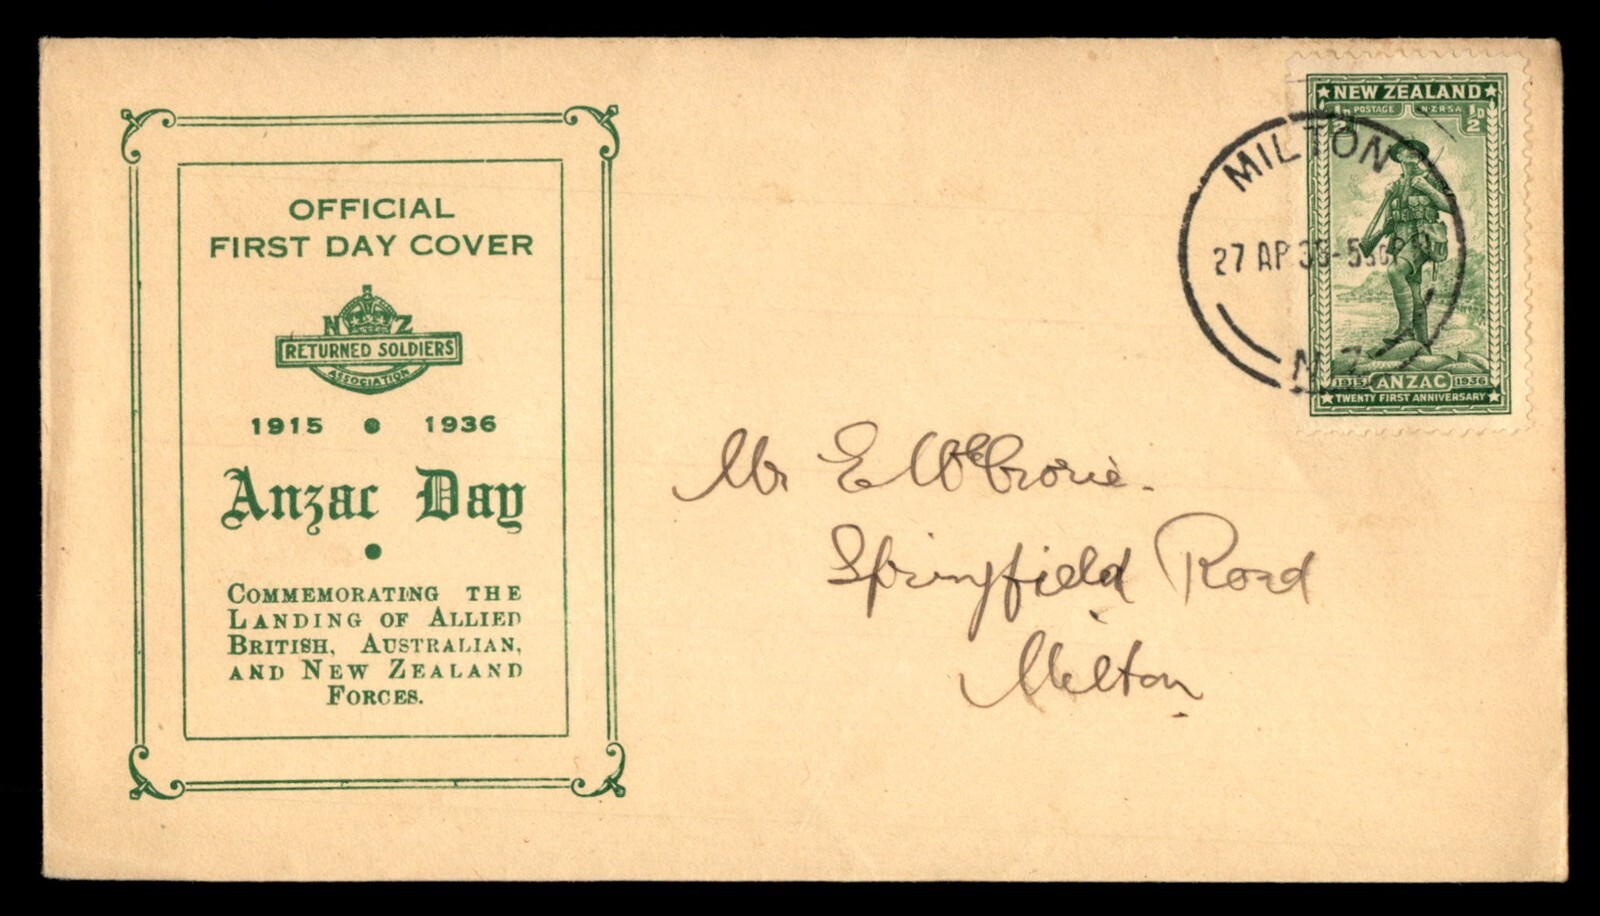 OFFICIAL
FIRST DAY COVER
N Z
RETURNED SOLDIERS
ASSOCIATION
1915 • 1936
Anzac Day
COMMEMORATING THE
LANDING OF ALLIED
BRITISH, AUSTRALIAN,
AND NEW ZEALAND
FORCES.
NEW ZEALAND
½D POSTAGE N.Z.R.S.A. ½D
1915 ANZAC 1936
TWENTY FIRST ANNIVERSARY
MILTON
27 AP 36
N.Z.
Mr E McCrorie.
Springfield Road
Milton